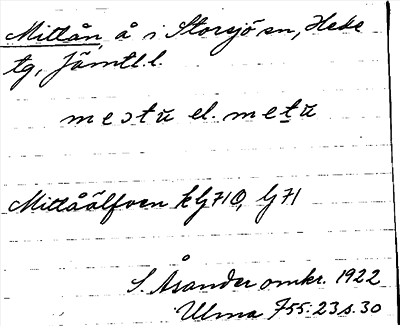 Mittån, å i Storsjö sn, Hede
tg, Jämtl. l.
meɔtū el. metū
Mittåälfven kG710, G71
S. Åsander omkr. 1922
Ulma 755:23 s. 30